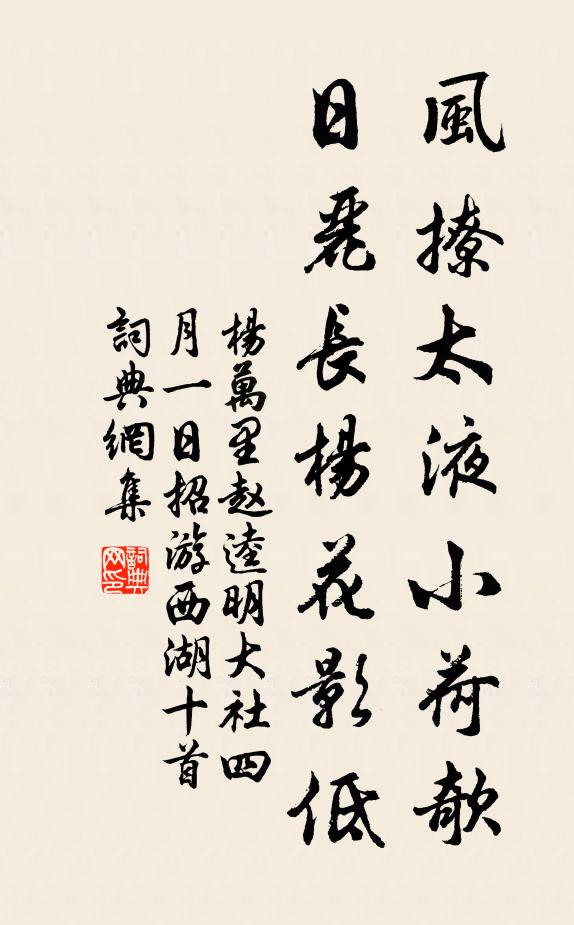 風撩太液小荷欹
日麗長楊花影低
楊萬里赵逵明大社四
月一日招游西湖十首
詞典網集
詞典网印